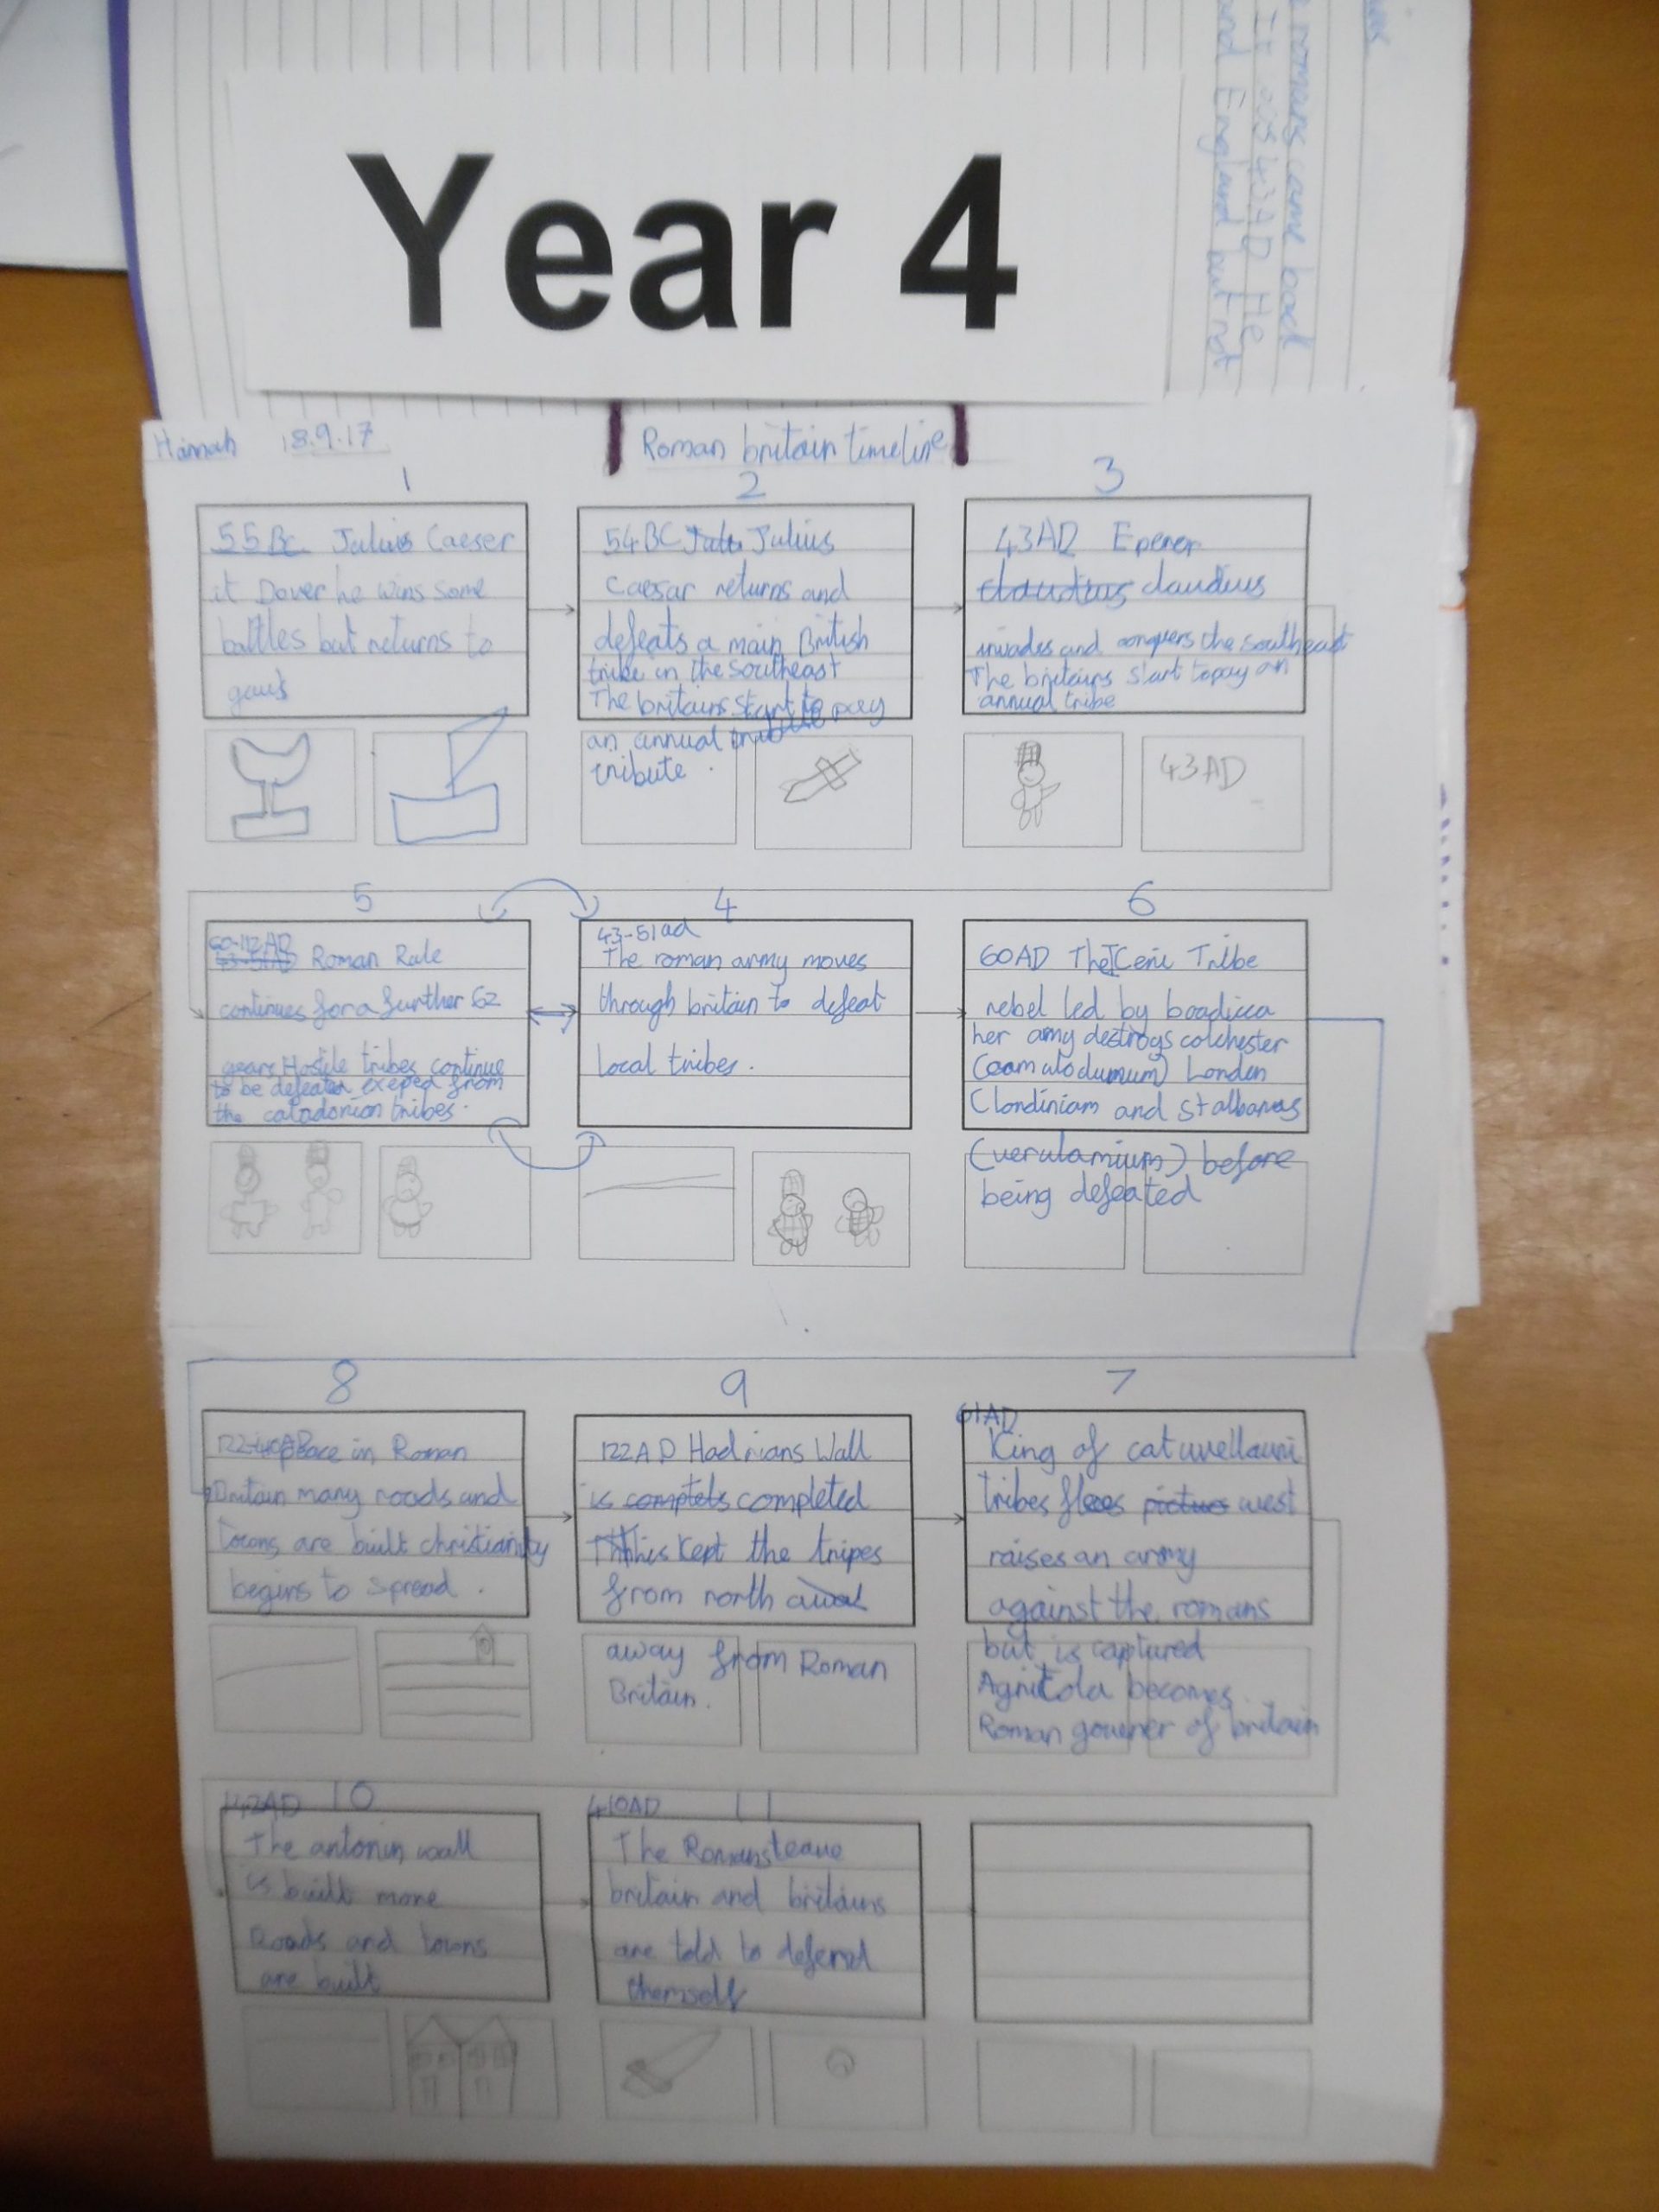 Year 4
romans came back
It was 43AD He
and England but not
Hannah 18.9.17 Roman britain timeline
1
55Bc Julius Caeser
at Dover he wins some
battles but returns to
gaul
2
54BC Julius
Caesar returns and
defeats a main British
tribe in the Southeast
The britains start to pay
an annual
tribute.
3
43AD Eperer
claudius claudius
invades and conquers the southeast
The britains start to pay an
annual tribe
43AD
5
60-112AD
43-51AD Roman Rule
continues for a further 62
years Hostile tribes continue
to be defeated exeped from
the caladonian tribes.
4
43-51ad
The roman army moves
through britain to defeat
local tribes.
6
60AD The Iceni Tribe
rebel led by boadicca
her army destroys colchester
(camulodumum) London
Clondiniam and st albanas
(verulamium) before
being defeated
8
122-410AD peace in Roman
Britain many roads and
towns are built christianity
begins to spread.
9
122AD Hadrians Wall
is complets completed
This kept the tripes
from north awal
away from Roman
Britain.
7
61AD
King of catuvellauni
tribes flees pictues west
raises an army
against the romans
but is captured
Agricola becomes
Roman gouener of britain
142AD 10
The antonin wall
is built more
Roads and towns
are built
410AD 11
The Romans leave
britain and britains
are told to defend
themself